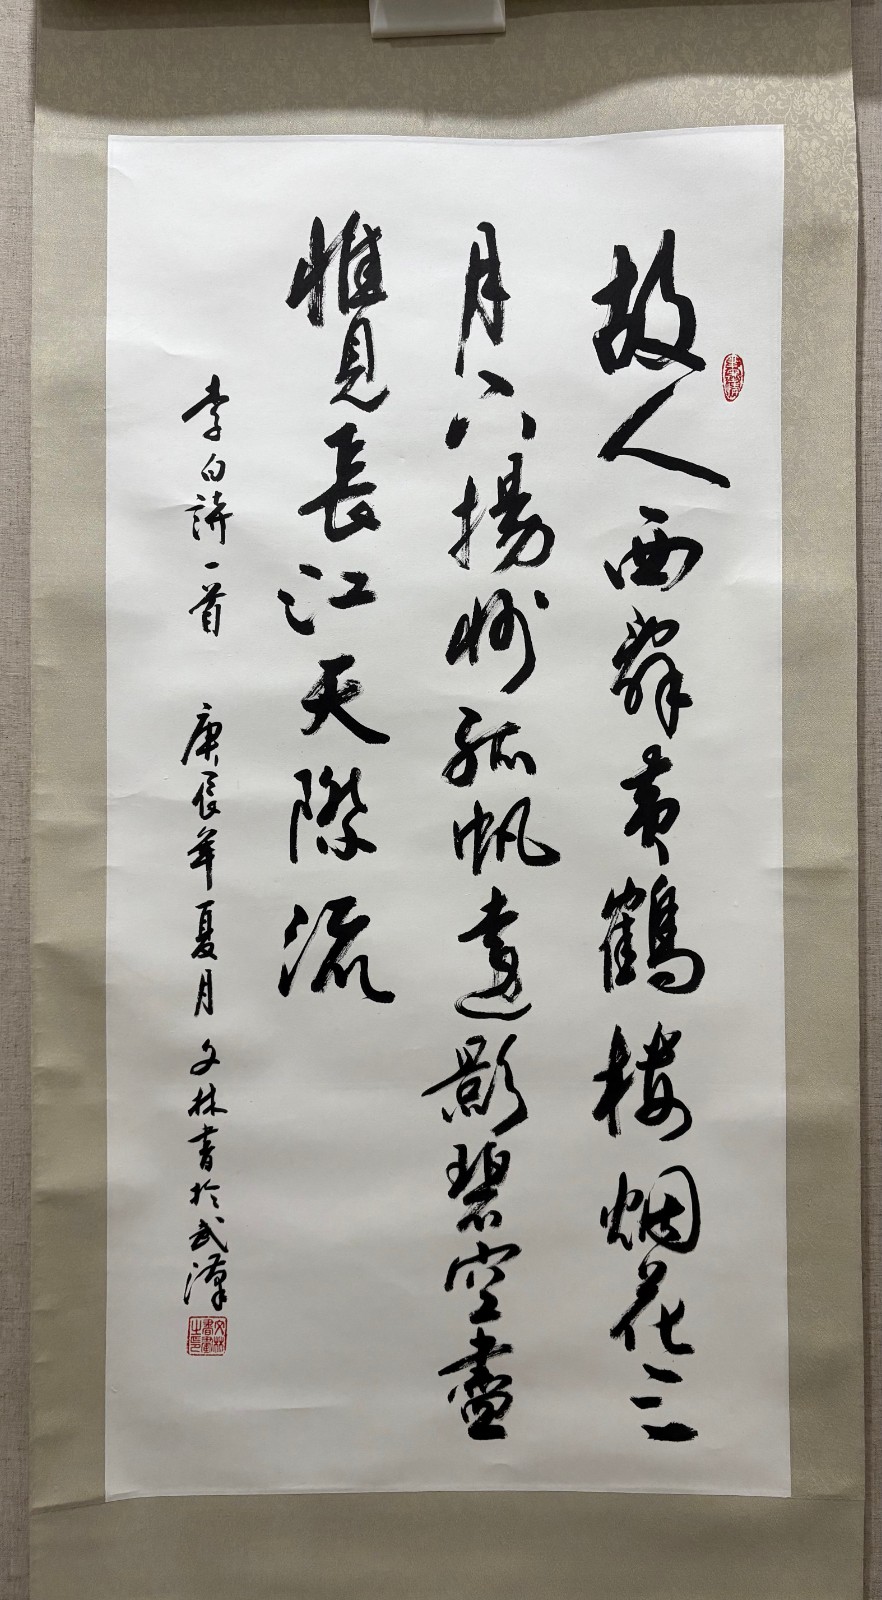 故人西辞黄鹤楼烟花三
月下揚州孤帆遠影碧空盡
惟見長江天際流
李白詩一首 庚辰年夏月 文林書於武漢
文林書畫之印